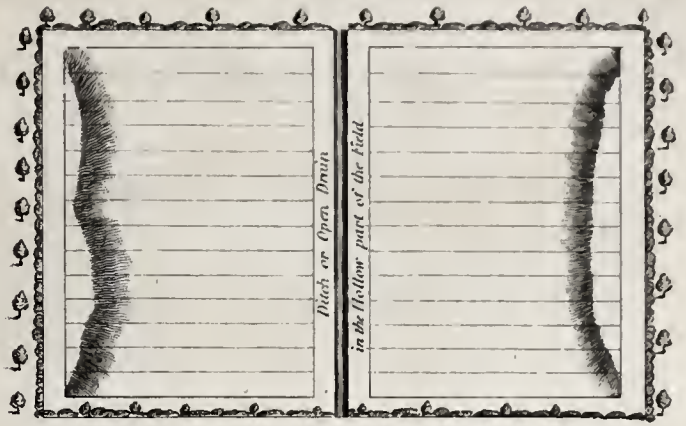 Ditch or Open Drain
in the Hollow part of the Field